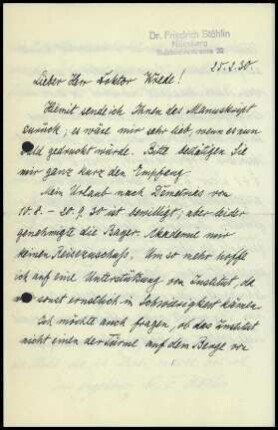 Dr. Friedrich Stählin
Nürnberg
25.2.30.
Lieber Herr Doktor Wrede!
Hiemit sende ich Ihnen das Manuskript
zurück; es wäre mir sehr lieb, wenn es nun
bald gedruckt würde. Bitte bestätigen Sie
mir ganz kurz den Empfang.
Mein Urlaub nach Demetrias von
10.8. – 20.9.30 ist bewilligt, aber leider
genehmigte die Akademie mir
keinen Reisezuschuß. Um so mehr hoffe
ich auf eine Unterstützung vom Institut, da
sonst ernstlich in Schwierigkeit käme.
Ich möchte auch fragen, ob das Institut
nicht einen der Türme auf dem Berge von